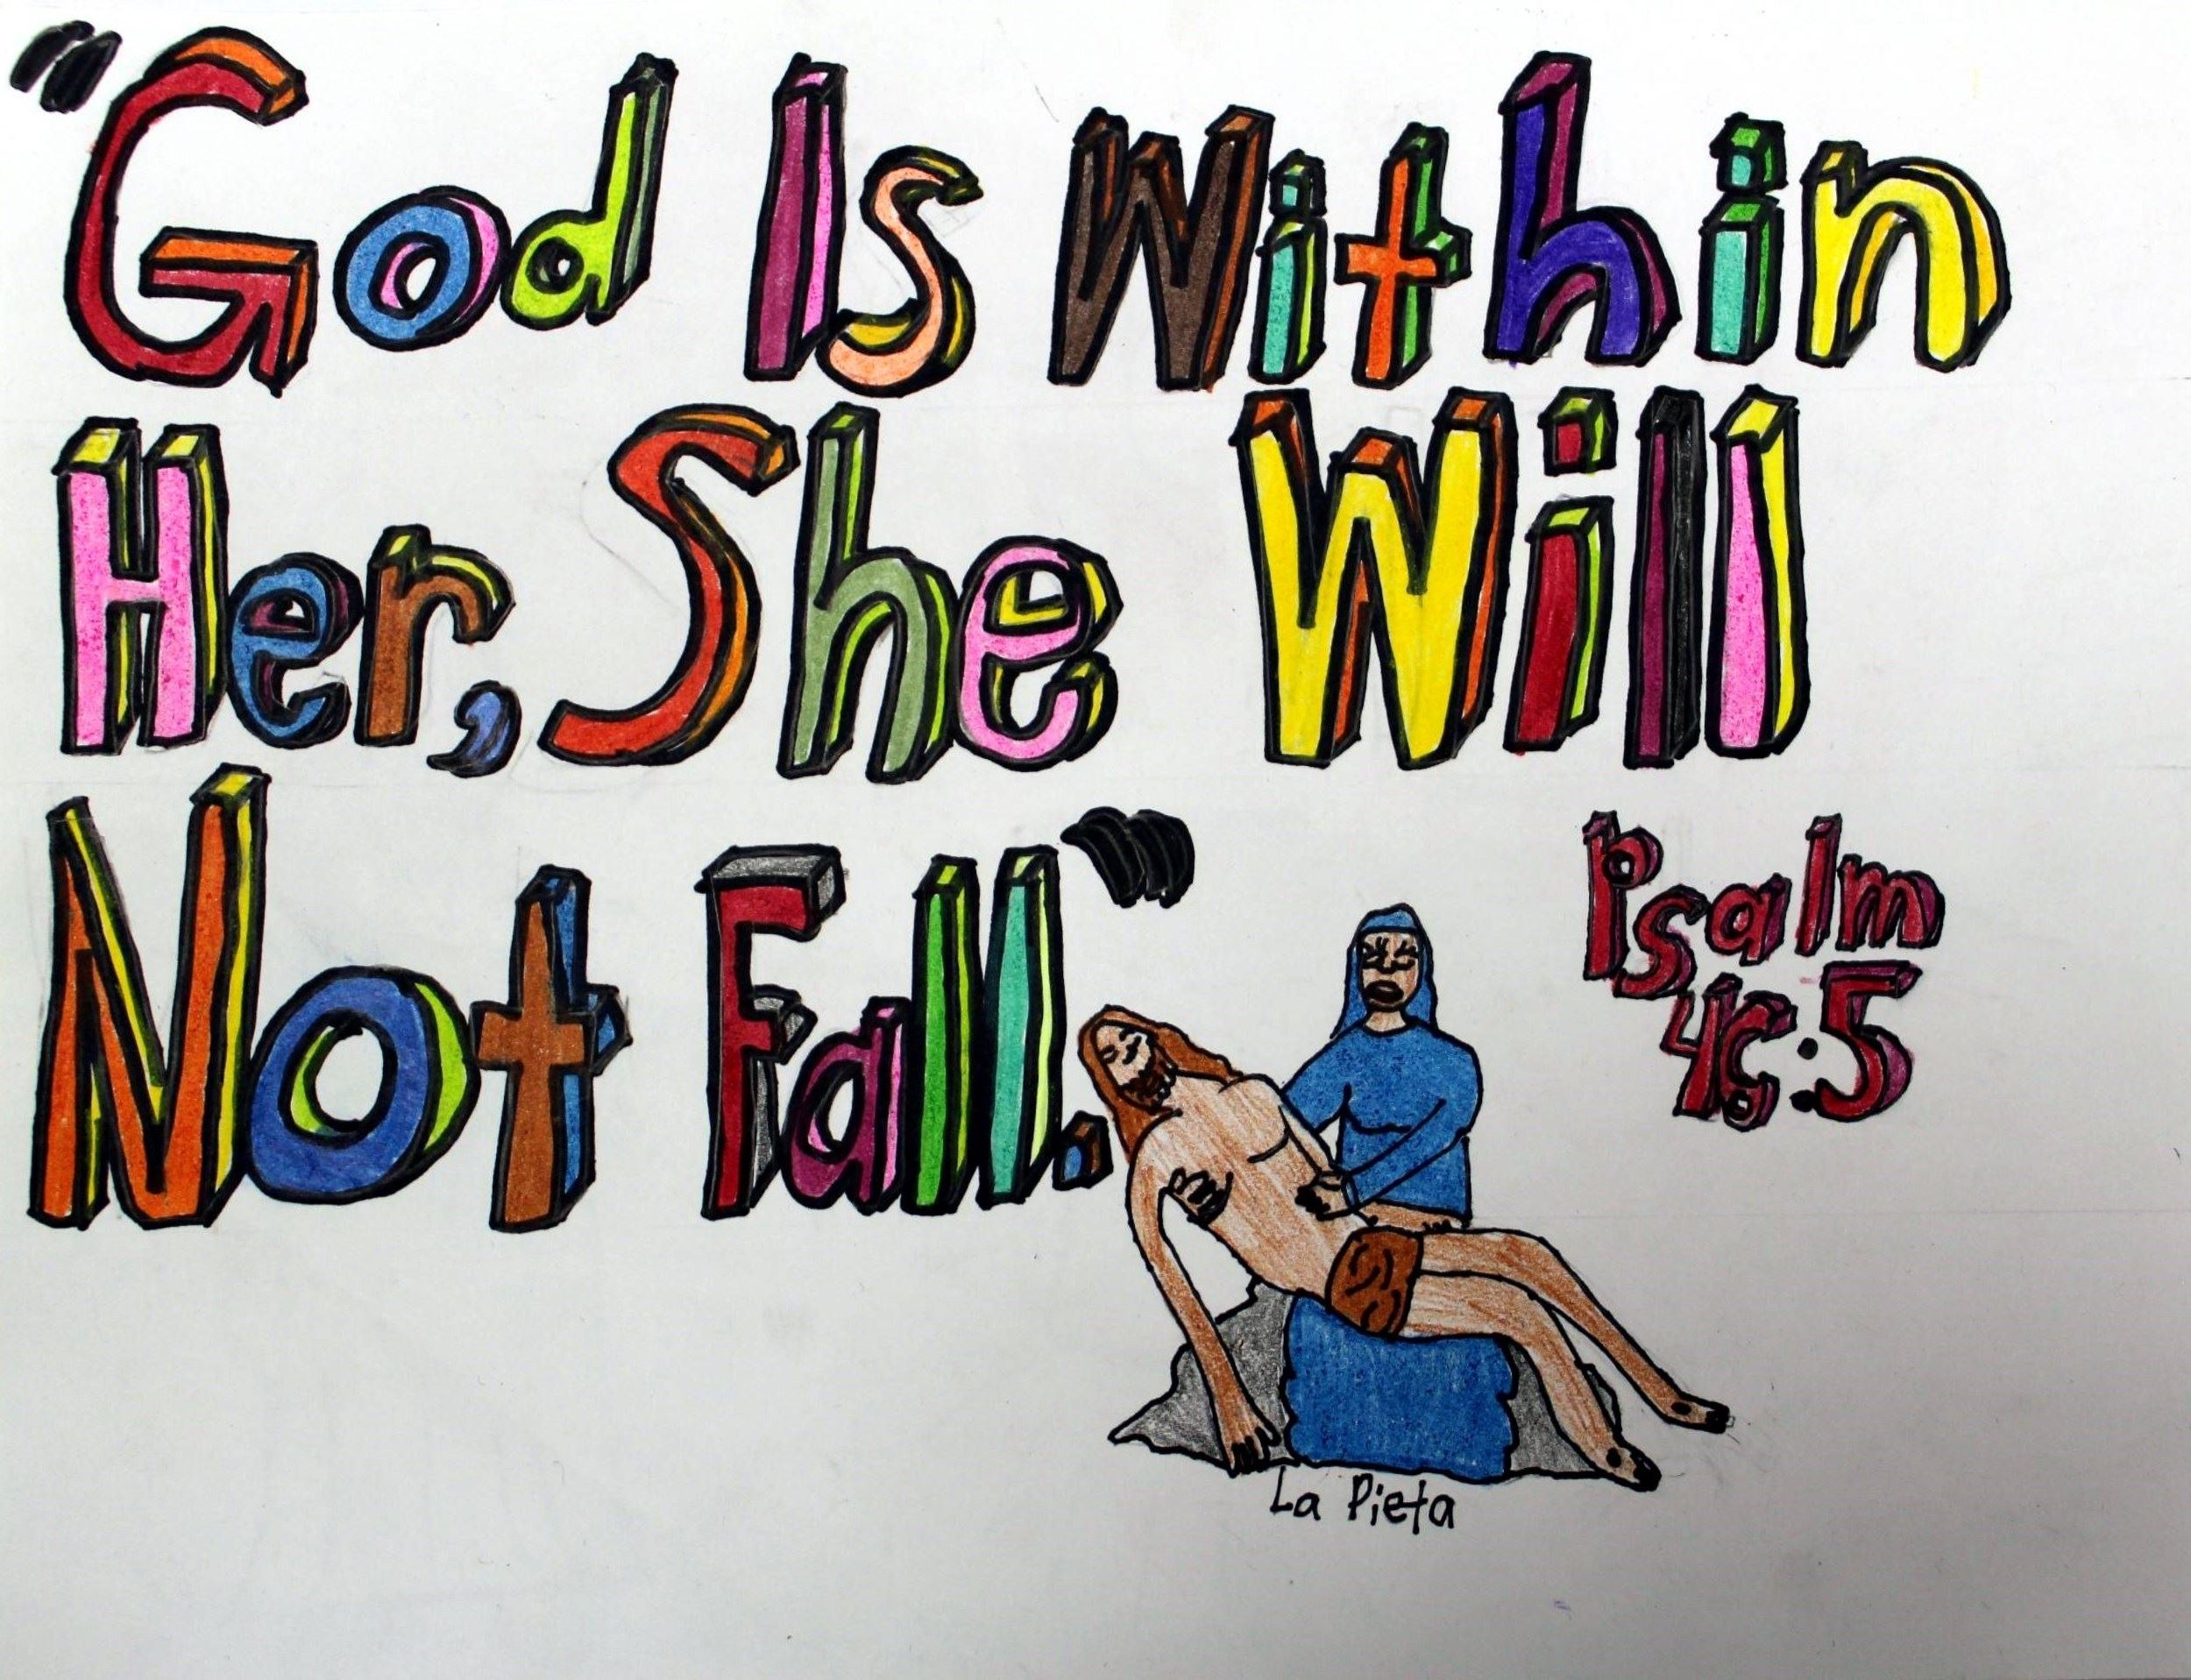 "God Is Within
Her, She Will
Not Fall."
Psalm
46:5
La Pieta